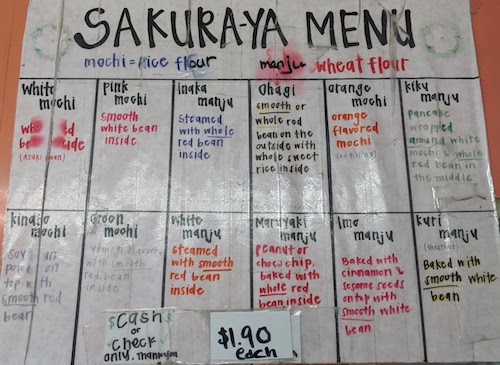 SAKURA-YA MENU
mochi = rice flour
manju = wheat flour
white
mochi
(azuki bean)
pink
mochi
smooth
white bean
inside
inaka
manju
steamed
with whole
red bean
inside
Ohagi
smooth or
whole red
bean on the
outside with
whole sweet
rice inside
orange
mochi
orange
flavored
mochi
(no filling)
kiku
manju
pancake
wrapped
around white
mochi & whole
red bean in
the middle
kinako
mochi
soy bean
powder on
top with
smooth red
bean
green
mochi
flavor
with smooth
red bean
inside
white
manju
steamed
with smooth
red bean
inside
Maruyaki
manju
peanut or
choc. chip.
baked with
whole red
bean inside
Imo
manju
Baked with
cinnamon &
sesame seeds
on top with
smooth white
bean
kuri
manju
(chestnut)
Baked with
smooth white
bean
$Cash$
or
check
only. Thank you
$1.90
each